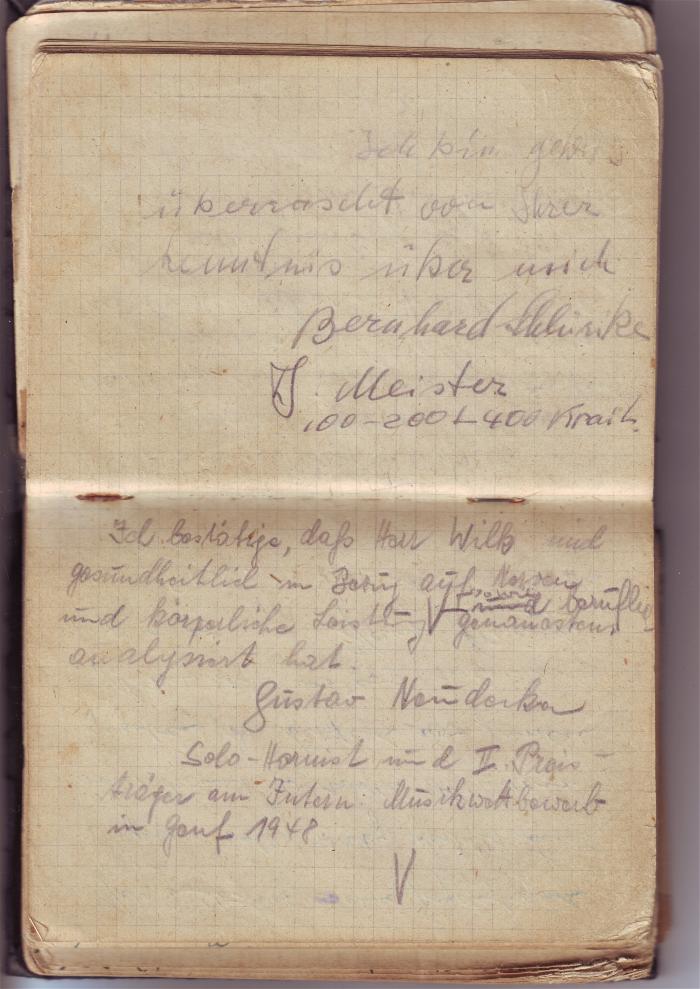 Ich bin gewiss
überrascht von Ihrer
kenntnis über mich
Bernhard
Meister
100-200+400 Kraul.
Ich bestätige, daß Herr Wilk mich
gesundheitlich in Bezug auf Nerven
sowie berufliche
und körperliche Leistung genauestens
analysiert hat.
Gustav Neudecker
Solo-Hornist und II. Preis-
träger am Intern. Musikwettbewerb
in Genf 1948.